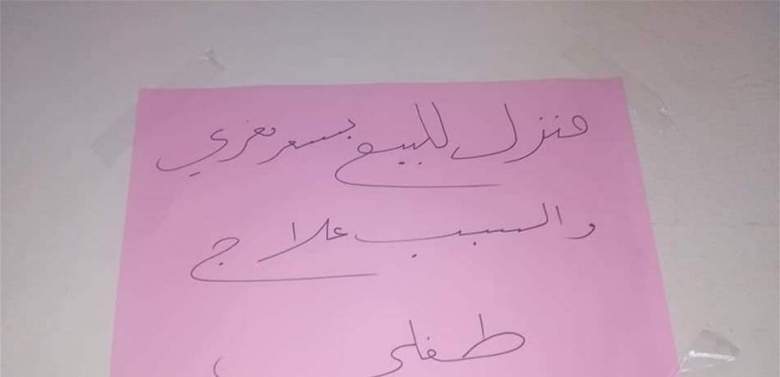 منزل للبيع بسعر مغري
والسبب علاج
طفلي